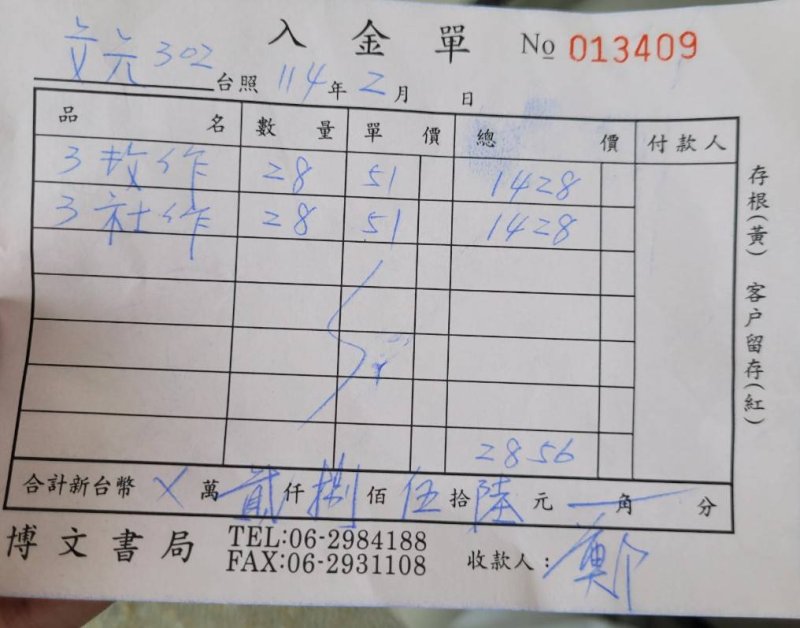 入金單 No 013409
文元 302 台照 114年2月 日
品名 數量 單價 總價 付款人
3 數作 28 51 1428
3 社作 28 51 1428
2856
合計新台幣 X 萬 貳 仟 捌 佰 伍 拾 陸 元 角 分
博文書局 TEL:06-2984188
FAX:06-2931108
收款人: 鄭
存根(黃) 客戶留存(紅)